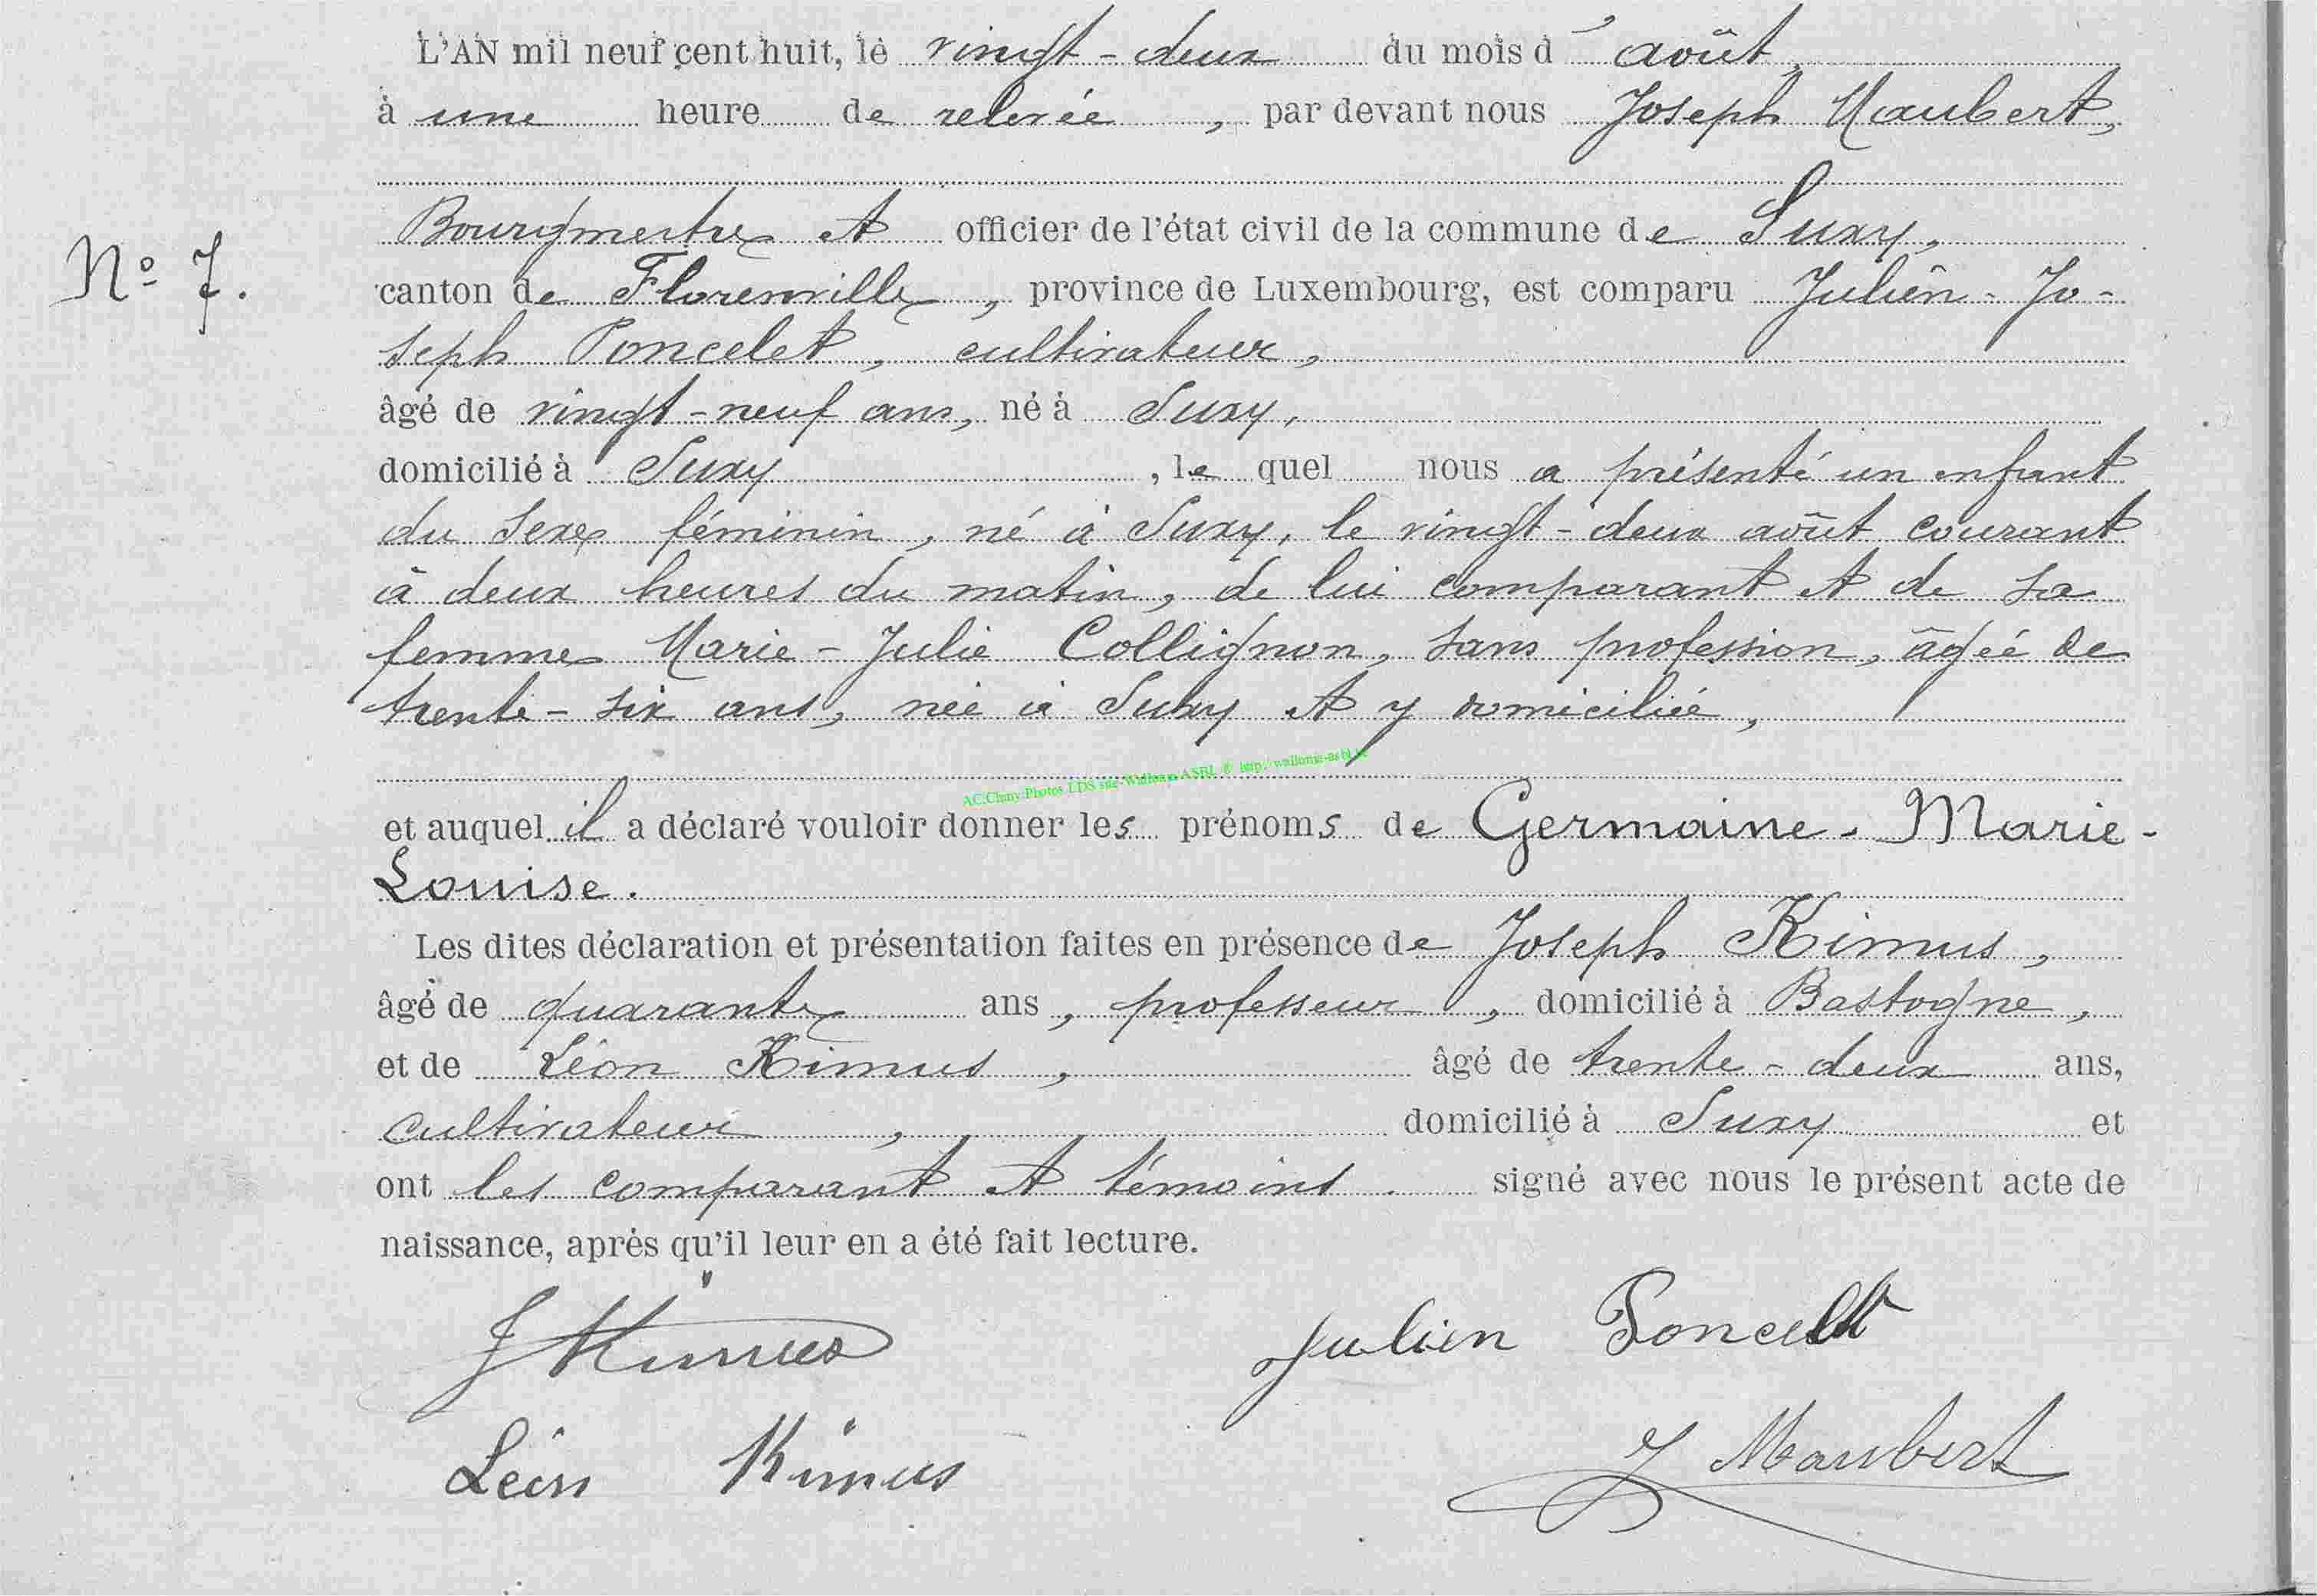 L'AN mil neuf cent huit, le vingt-deux du mois d'août,
à une heure de relevée, par devant nous Joseph Maubert,
Bourgmestre et officier de l'état civil de la commune de Suxy,
N° 7.
canton de Florenville, province de Luxembourg, est comparu Julien-Jo-
seph Poncelet, cultivateur,
âgé de vingt-neuf ans, né à Suxy,
domicilié à Suxy, le quel nous a présenté un enfant
du sexe féminin, né à Suxy, le vingt-deux août courant
à deux heures du matin, de lui comparant et de sa
femme Marie-Julie Collignon, sans profession, âgée de
trente-six ans, née à Suxy et y domiciliée,
AC.Chiny Photos LDS site Wallonia ASBL © http://wallonia-asbl.be
et auquel il a déclaré vouloir donner les prénoms de Germaine-Marie-
Louise.
Les dites déclaration et présentation faites en présence de Joseph Kimus,
âgé de quarante ans, professeur, domicilié à Bastogne,
et de Léon Kimus, âgé de trente-deux ans,
cultivateur, domicilié à Suxy et
ont les comparant et témoins signé avec nous le présent acte de
naissance, après qu'il leur en a été fait lecture.
J Kimus Julien Poncelet
Léon Kimus J Maubert